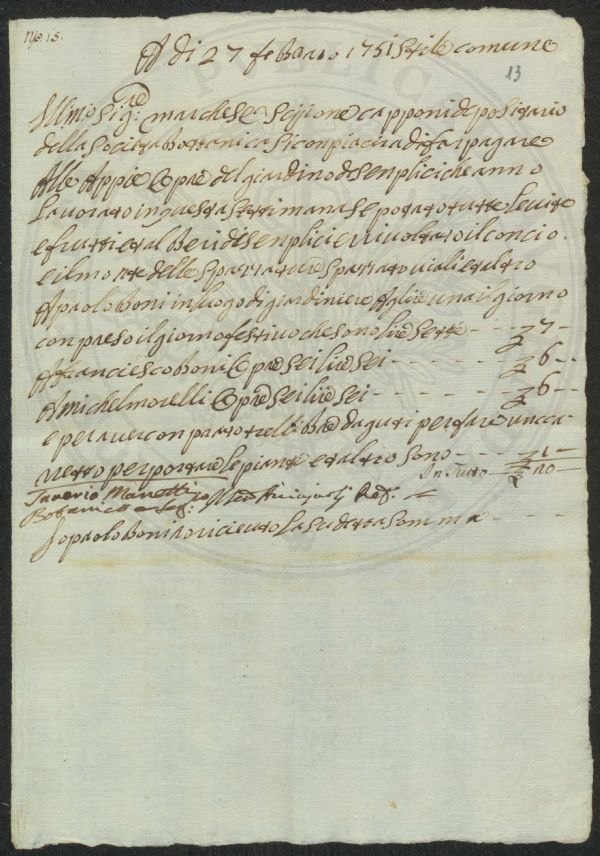 N.o 15.
A di 27 febbaro 1751 stile comune
13
Ill.mo Sig:re marchese Scipione capponi depositario
della Societa Bottanica si conpiacera di far pagare
Alle Appie Opre del giardino di senplici che anno
Lavorato in questa settimana e potato tutte le vite
e frutti et alberi di senplici e rivoltato il concio.
e il monte delle spazzature spazzato viali et altro
A paolo Boni in luogo di giardiniere A lire una il giorno
conpreso il giorno festivo che sono lire sette - - - 7 -
A franciesco Boni Opre sei lire sei - - - - - - 6 - -
A michel morelli Opre sei lire sei - - - - - - 6 - -
e per aver conprato tre libre daguti per fare un ca
retto per portare le piante et altro sono - - - 1 -
In Tutto 20 -
Saverio Manetti
Botanico e Seg:
Io paolo Boni o riceuto la sudetta somma - - - -